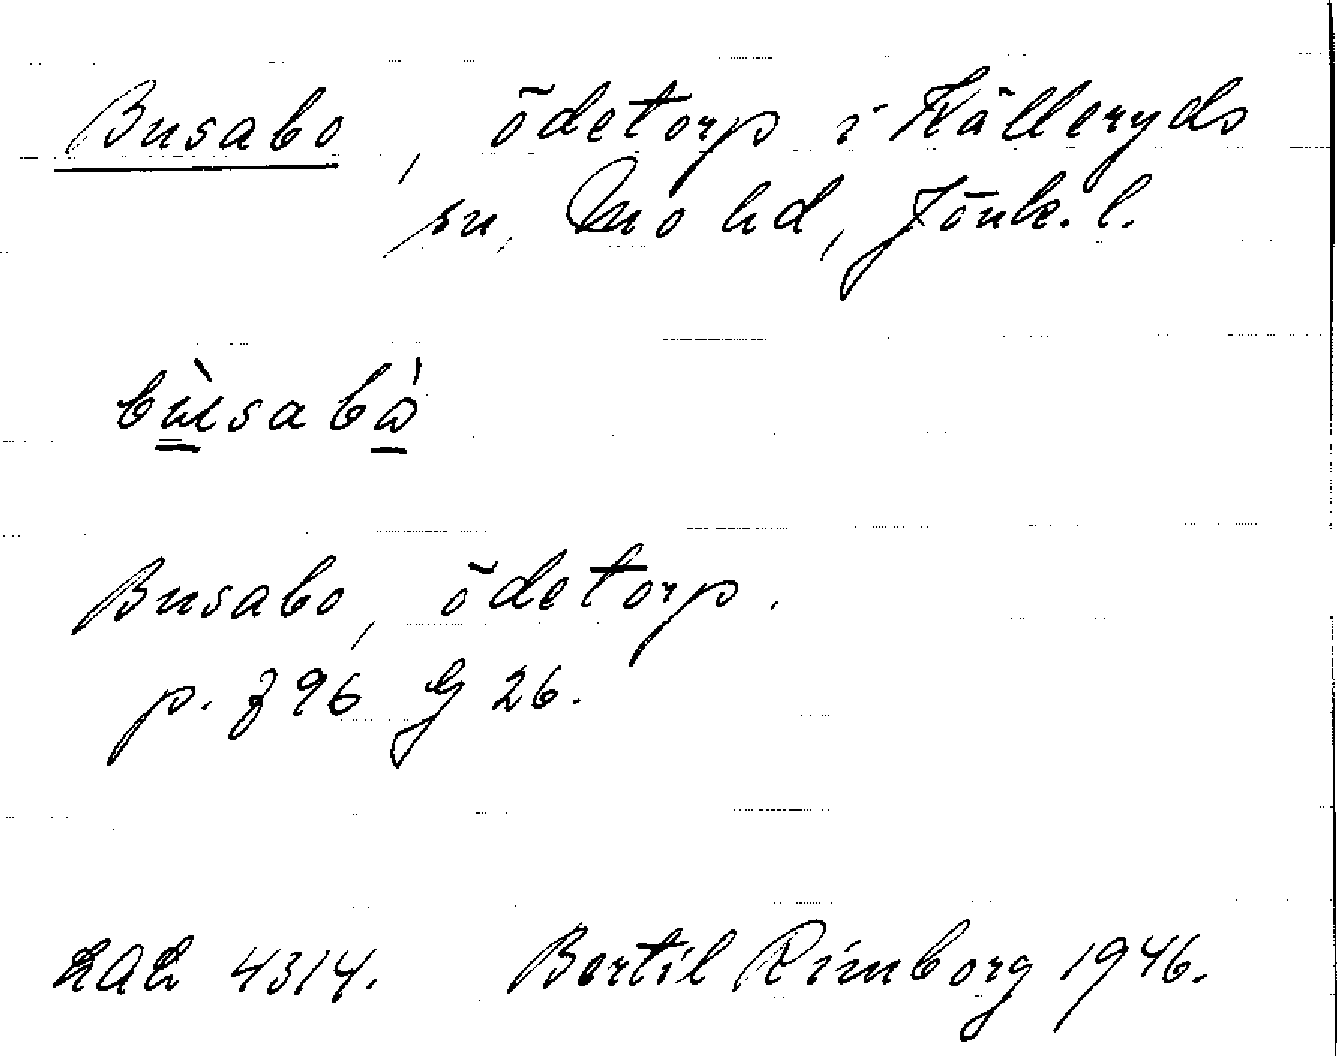 Busabo, ödetorp i Källeryds
sn, Mo hd, Jönk. l.
bùsabò
Busabo, ödetorp.
p. 796 G 26.
LAL 4314. Bertil Rimborg 1946.